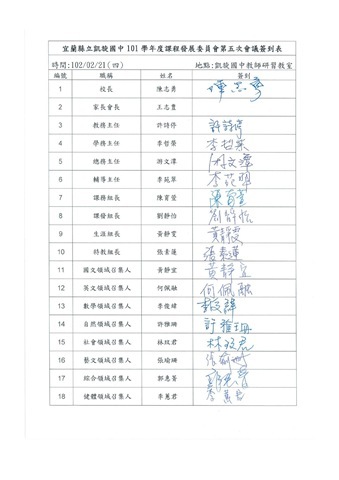 宜蘭縣立凱旋國中 101 學年度課程發展委員會第五次會議簽到表
時間:102/02/21(四) 地點:凱旋國中教師研習教室
編號 職稱 姓名 簽到
1 校長 陳志勇 陳志勇
2 家長會長 王志豐
3 教務主任 許詩婷 許詩婷
4 學務主任 李哲榮 李哲榮
5 總務主任 游文濤 游文濤
6 輔導主任 李苑翠 李苑翠
7 課務組長 陳育萱 陳育萱
8 課發組長 劉靜怡 劉靜怡
9 生涯組長 黃靜雯 黃靜雯
10 特教組長 張素蓮 張素蓮
11 國文領域召集人 黃靜宜 黃靜宜
12 英文領域召集人 何佩融 何佩融
13 數學領域召集人 李俊緯
14 自然領域召集人 許雅珊 許雅珊
15 社會領域召集人 林玟君 林玟君
16 藝文領域召集人 張瑜珊 張瑜珊
17 綜合領域召集人 郭惠菁
18 健體領域召集人 李蕙君